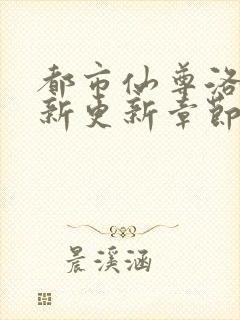 都市仙尊洛
新更新章節
晨溪涵